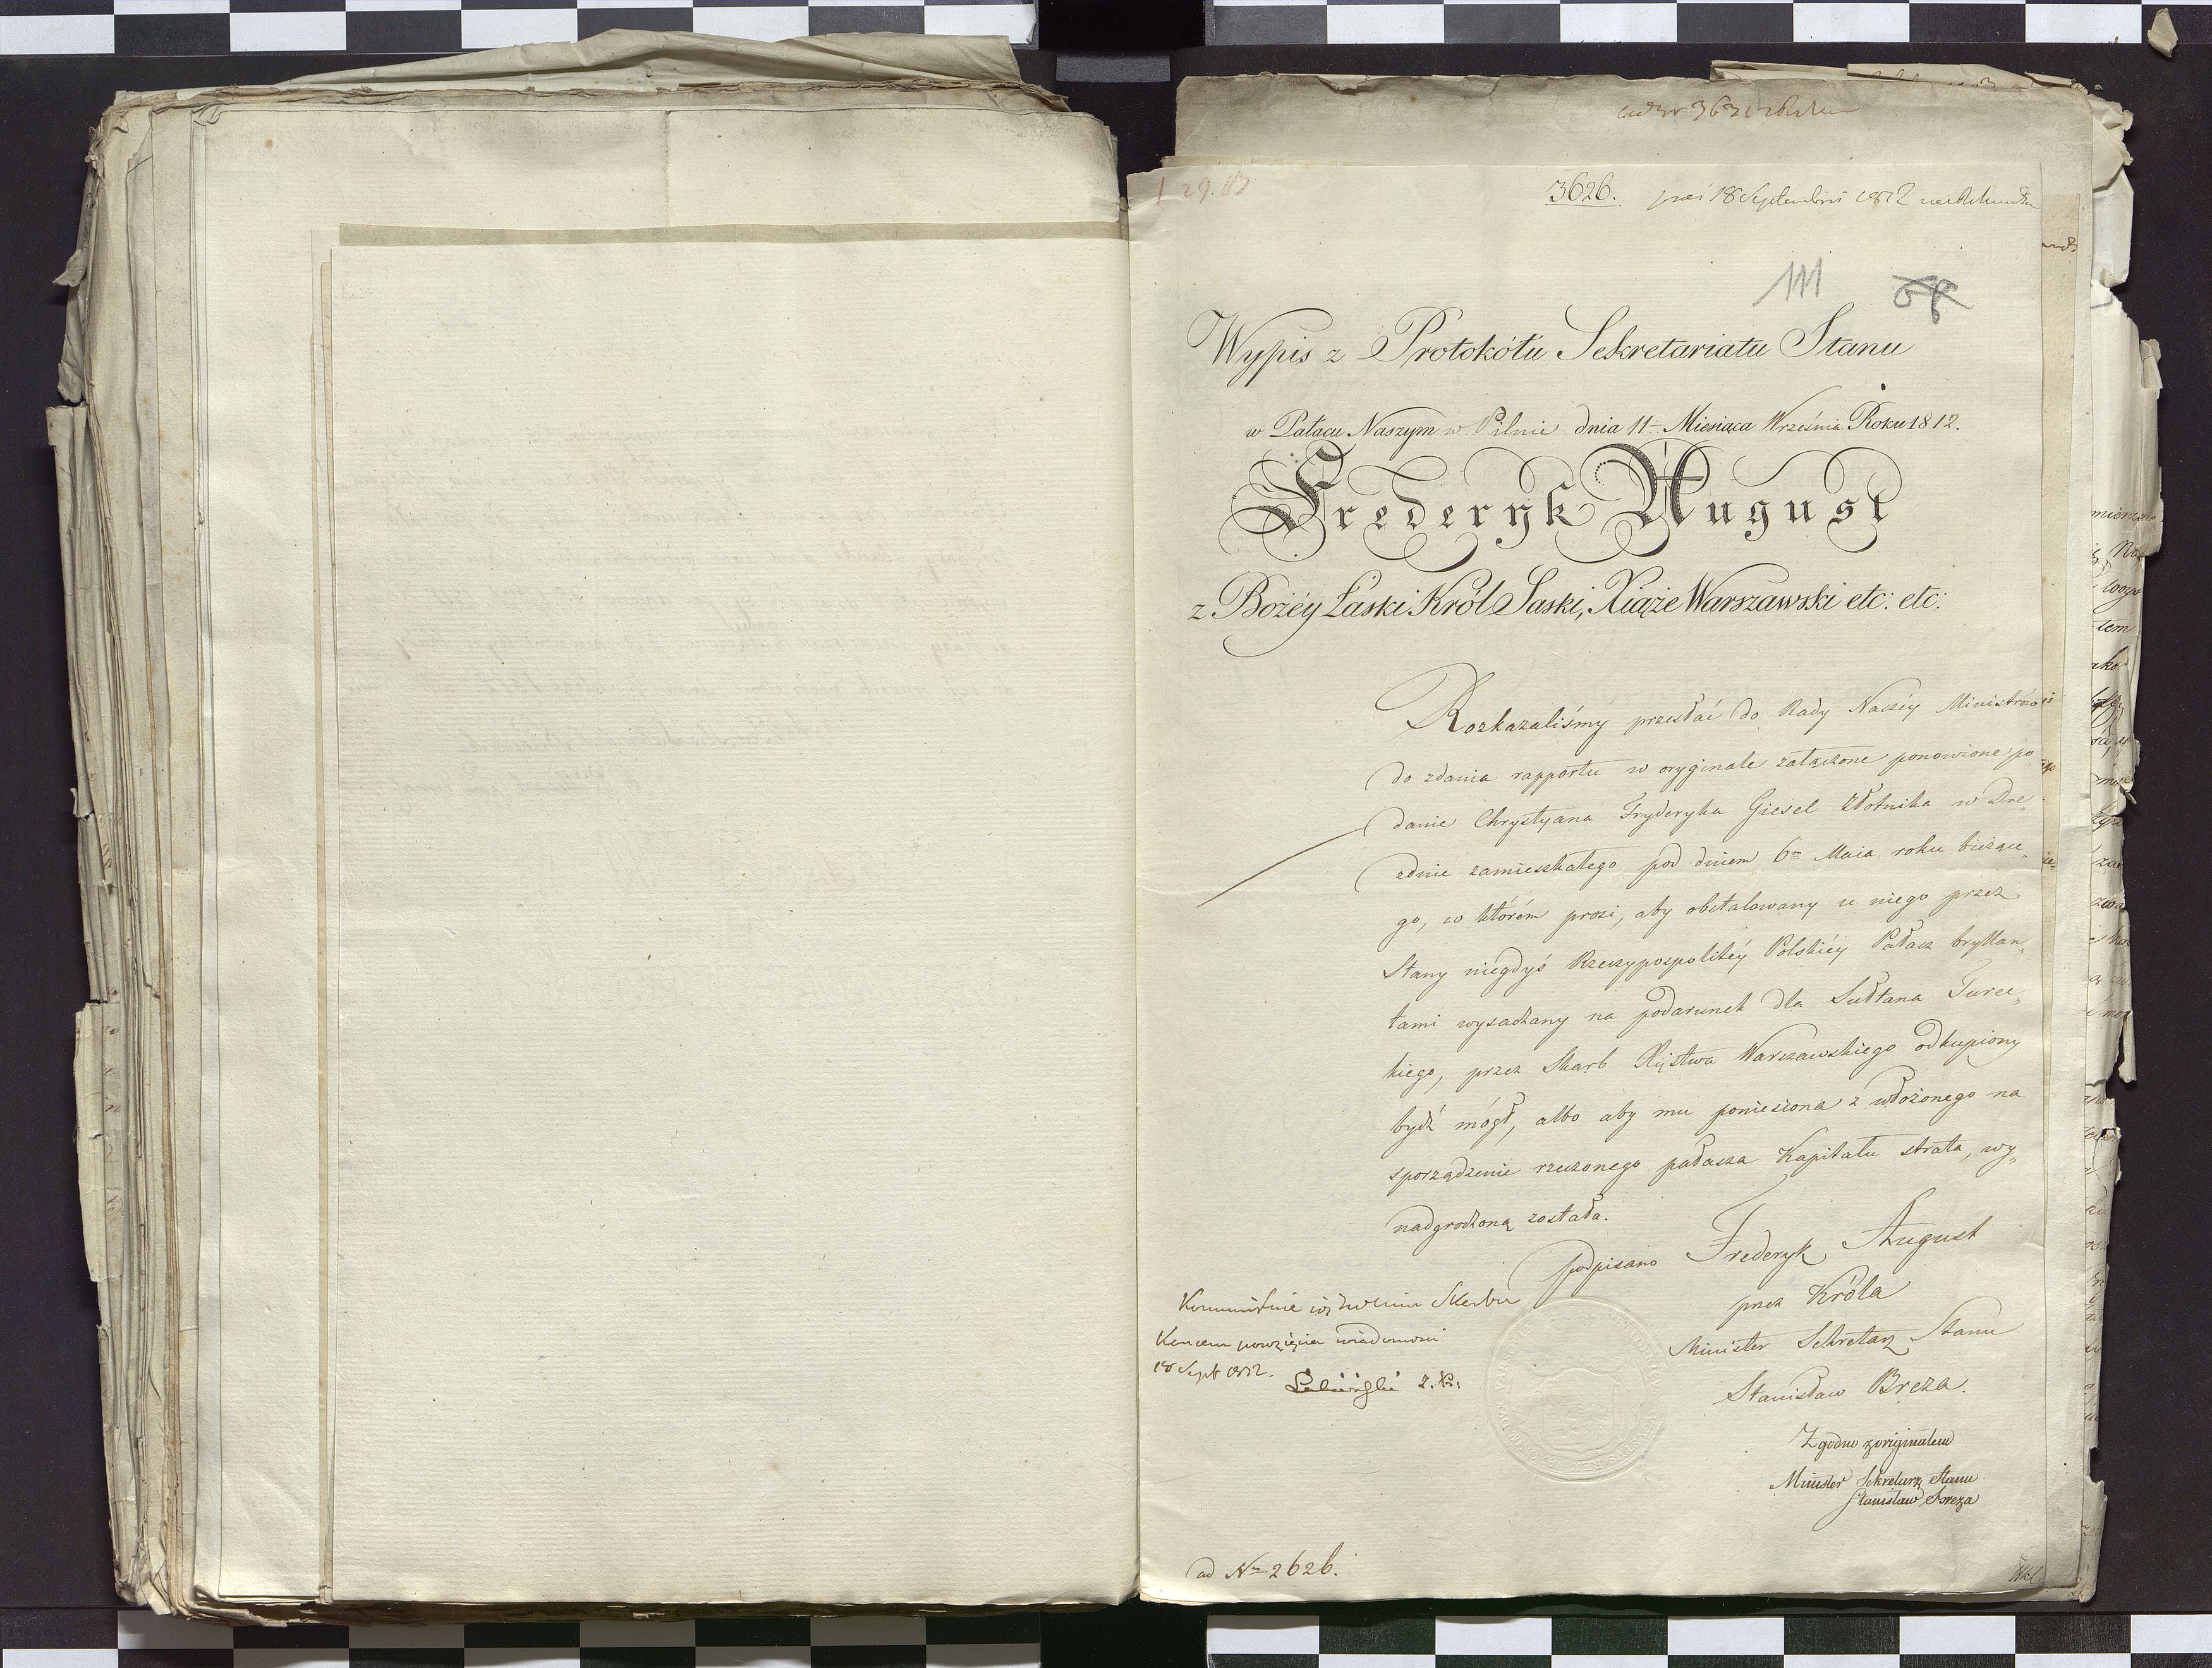 3626. 18 Septembris 1812
111
Wypis z Protokółu Sekretariatu Stanu
w Pałacu Naszym w Pilnie dnia 11 Miesiąca Września Roku 1812.
Frederyk August
z Bożéy Łaski Król Saski, Xiąże Warszawski etc: etc:
Rozkazaliśmy przesłać do Rady Naszéy Ministrów
do zdania rapportu w oryginale załączone ponowione po
danie Chrystyana Fryderyka Giesel złotnika w Dre„
zdnie zamieszkałego pod dniem 6m Maia roku bieżące„
go, w którém prosi, aby obstalowany u niego przez
Stany niegdyś Rzeczypospolitéy Polskiéy Pałasz bryllan„
tami wysadzany na podarunek dla Sułtana Turec„
kiego, przez Skarb Xięstwa Warszawskiego odkupiony
bydź mógł, albo aby mu poniesiona z włożonego na
sporządzenie rzeczonego pałasza Kapitału strata, wy„
nadgrodzoną została.
podpisano Frederyk August
przez Króla
Minister Sekretarz Stanu
Stanisław Breza.
Zgodno z originałem
Minister Sekretarz Stanu
Stanisław Breza
Skarbu
Koncem powzięcia wiadomości
18 Sept 1812.
ad No 2626.